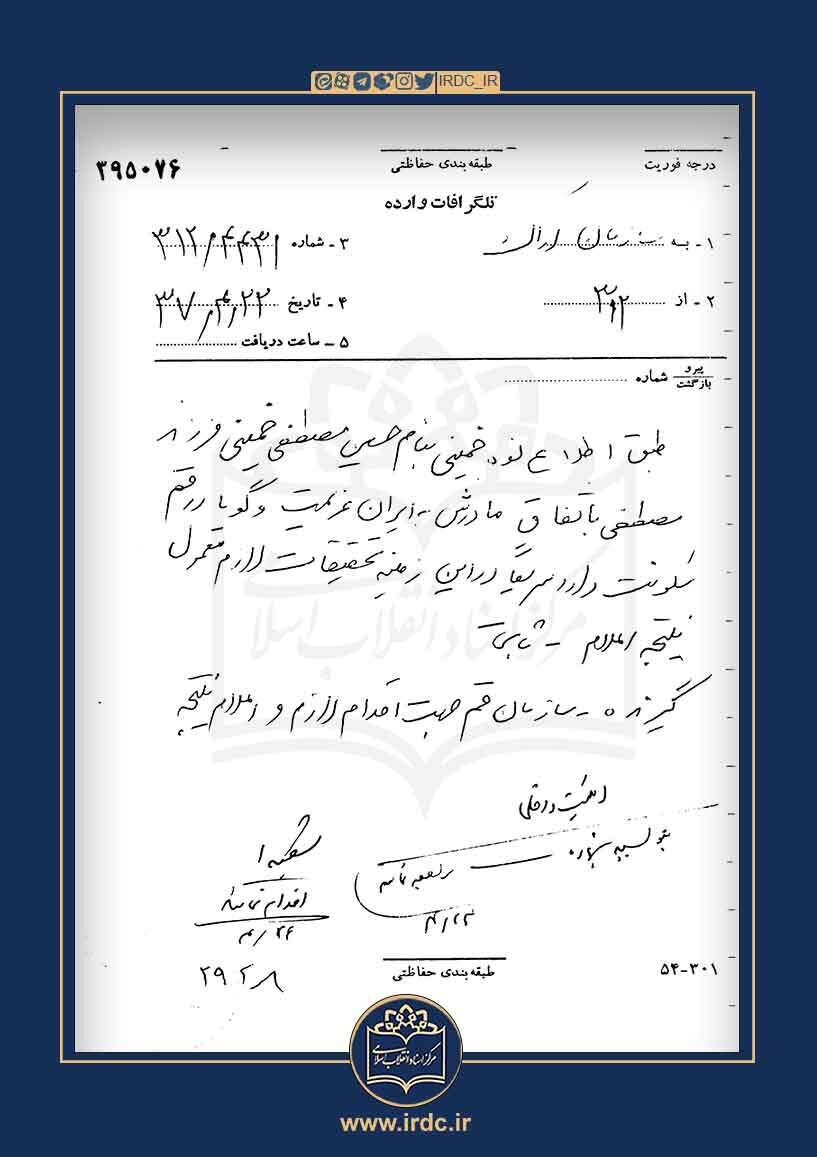 IRDC_IR
درجه فوریت
طبقه بندی حفاظتی
۳۹۵۰۷۶
تلگرافات وارده
۱- به سازمان اراک
۳- شماره ۳۱۲/۴۴۳۱
۲- از ۳۱۲
۴- تاریخ ۳۷/۴/۲۳
۵- ساعت دریافت
پیرو
بازگشت
شماره
طبق اطلاع نوه خمینی بنام حسین مصطفی خمینی فرزند
مصطفی باتفاق مادرش به ایران عزیمت و گویا در قم
سکونت دارد سریعاً در این زمینه تحقیقات لازم معمول
نتیجه اعلام - ثابتی
گیرنده - سازمان قم جهت اقدام لازم و اعلام نتیجه
امنیت داخلی
۴/۲۳
اقدام نمائید
۴/۲۴
طبقه بندی حفاظتی
۵۴-۳۰۱
مرکز اسناد انقلاب اسلامی
www.irdc.ir